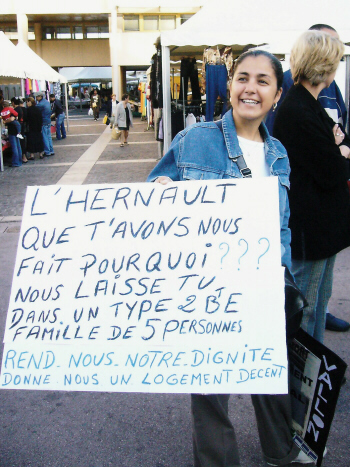 L'HERNAULT
QUE T'AVONS NOUS
FAIT POURQUOI ???
NOUS LAISSE TU
DANS UN TYPE 2 BE
FAMILLE DE 5 PERSONNES
REND. NOUS. NOTRE. DIGNITE
DONNE NOUS UN LOGEMENT DECENT